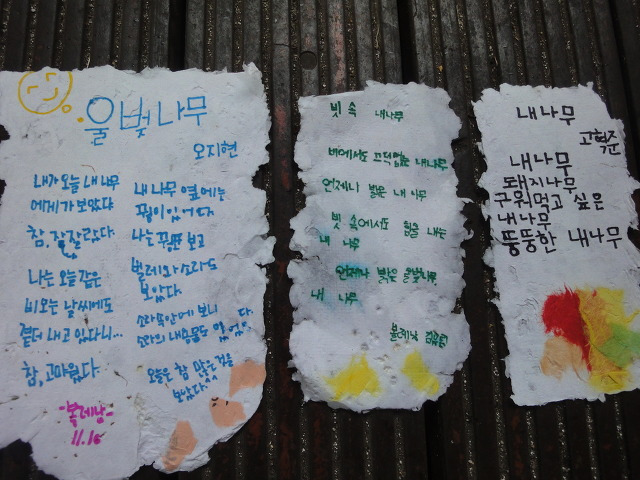 올벚나무
오지현
내가 오늘 내 나무
에게 가 보았다
참, 잘 잘랐다
나는 오늘 같은
비오는 날씨에도
곁에 내고 있다니...
참, 고마웠다
내 나무 옆에는
꿩이 있었다
나는 보고
벌레와 소라도
보았다
소라 속 안에 보니
소라의 내용물도 있었다
오늘은 참 많은 것을
보았다
11.16
빗 속 내나무
비에서도 내나무
언제나 밝은 내 나무
빗 속에서도 힘을 내는
내 나무
언제나 밝은 올벚나무
내 나무
내나무
고혁준
내나무
돼지나무
구워먹고 싶은
내나무
뚱뚱한 내나무